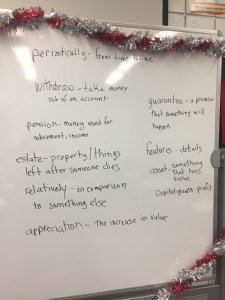 periodically - from time to time
withdraw - take money
out of an account
pension - money used for
retirement, income
estate - property/things
left after someone dies
relatively - in comparison
to something else
appreciation - The increase in value
guarantee - a promise
that something will
happen
features - details
asset - something
that has
value
capital growth - profit